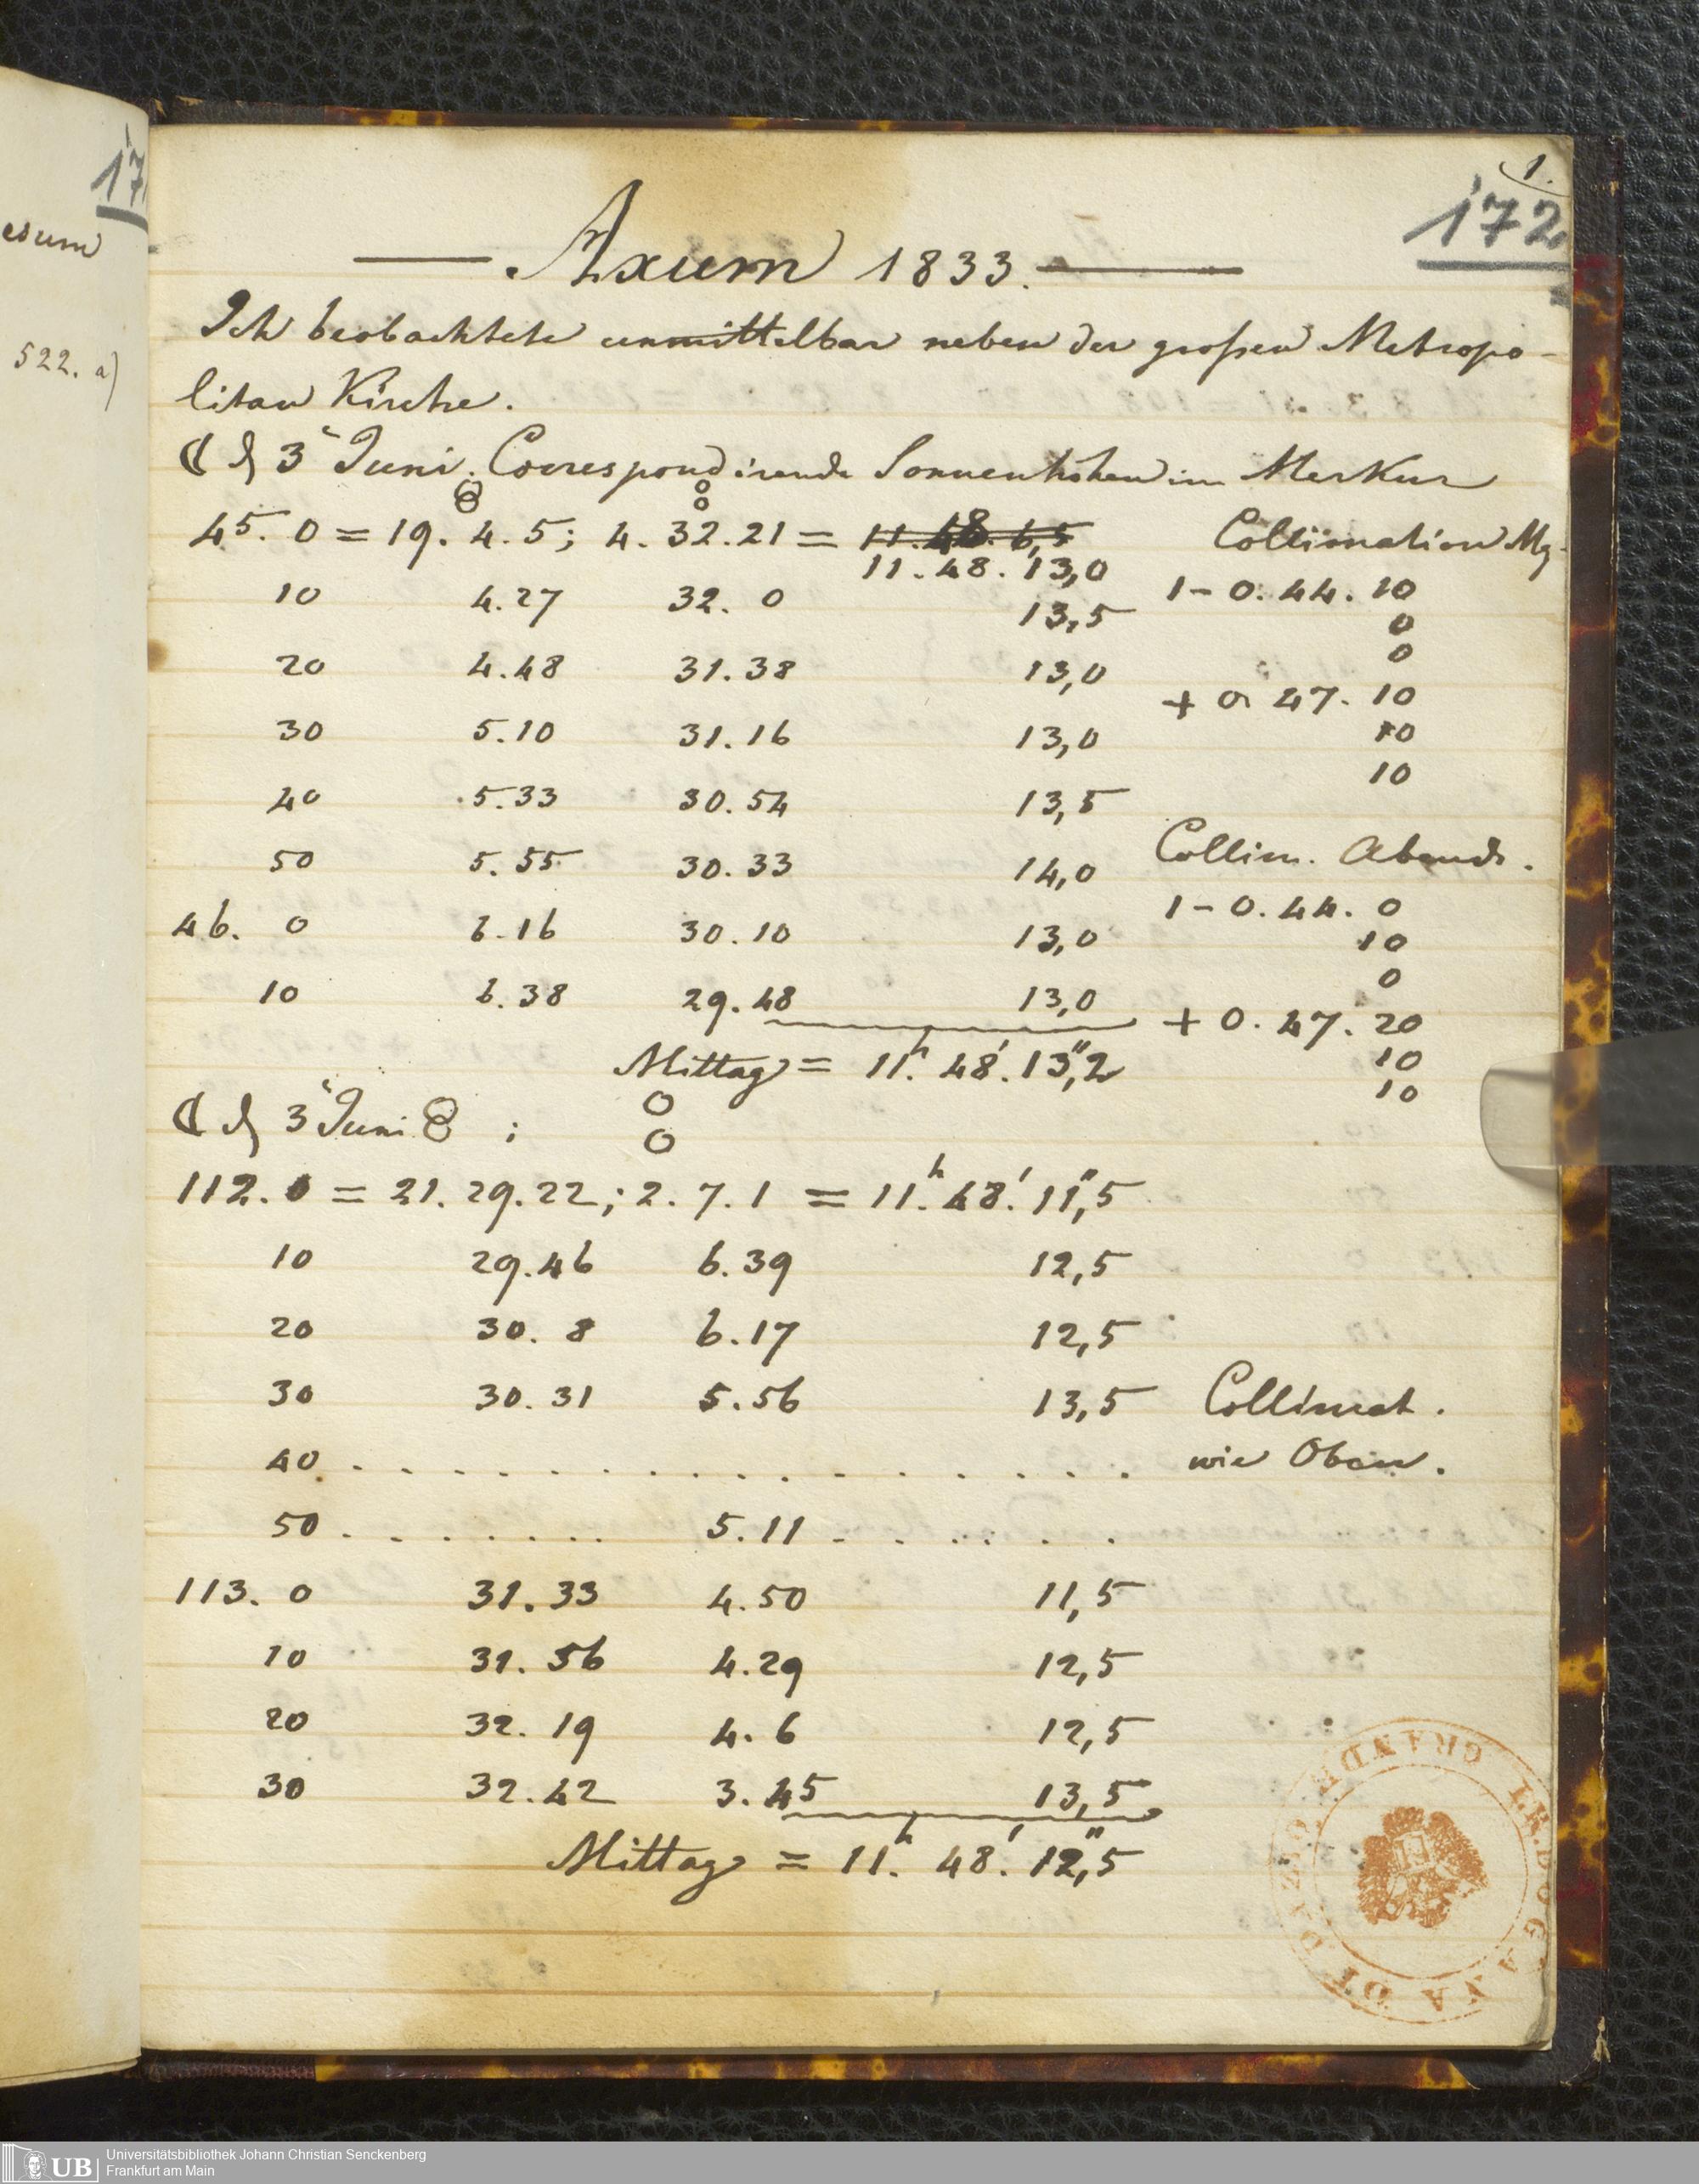 17
esum
522. a)
1.
172
Axum 1833.
Ich beobachtete unmittelbar neben der großen Metropo-
litan Kirche.
☾ d 3t Juni. Correspondirende Sonnenhöhen im Merkur
45. 0 = 19. 4. 5; 4. 32. 21 = 11. 48. 6,5 Collimation Mg.
11. 48. 13,0
10 4. 27 32. 0 13,5 1 - 0. 44. 10
0
20 4. 48 31. 38 13,0 0
+ 0 47. 10
30 5. 10 31. 16 13,0 10
10
40 5. 33 30. 54 13,5
50 5. 55 30. 33 14,0 Collim. Abends.
46. 0 6. 16 30. 10 13,0 1 - 0. 44. 0
10
0
10 6. 38 29. 48 13,0 + 0. 47. 20
Mittag = 11h. 48'. 13",2 10
10
☾ d 3t Juni ;
112. 0 = 21. 29. 22; 2. 7. 1 = 11h. 48'. 11",5
10 29. 46 6. 39 12,5
20 30. 8 6. 17 12,5
30 30. 31 5. 56 13,5 Collimat.
40 . . . . . . . . . . . . . . . . wie Oben.
50 . . . . . . . 5. 11 . . . . . .
113. 0 31. 33 4. 50 11,5
10 31. 56 4. 29 12,5
20 32. 19 4. 6 12,5
30 32. 42 3. 45 13,5
Mittag = 11h. 48'. 12",5
UB
Universitätsbibliothek Johann Christian Senckenberg
Frankfurt am Main